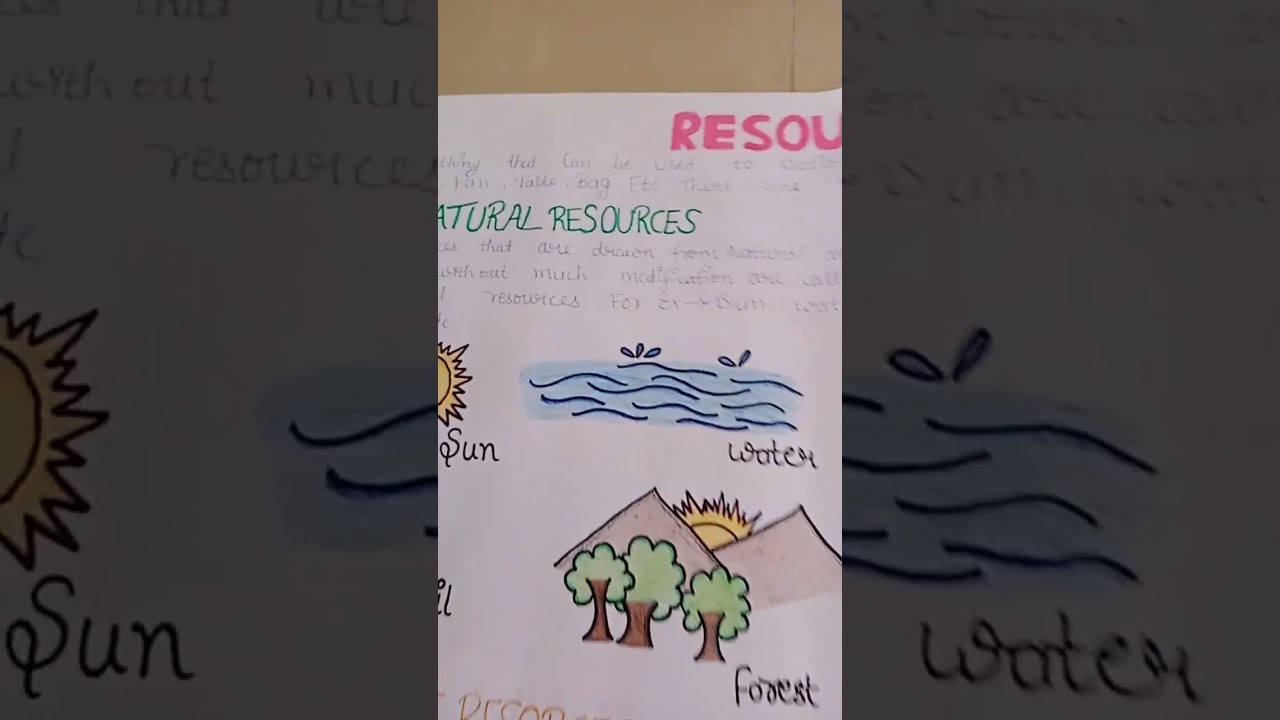 RESOU
thing that Can be used to
Fan, Table, Bag Etc There are
ATURAL RESOURCES
ces that are drawn from Natural
without much modification are call
l resources For Ex→Sun, wat
tc
Sun
water
il
forest